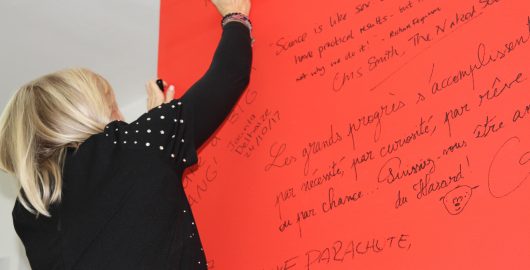 Science is like sex
have practical results - but
not why we do it! - Richard Feynman
Chris Smith, The Naked Sc
BIG
BANG!
Delphine
21/10/17
Les grands progrès s'accomplissent
par nécéssité, par curiosité, par rêve
ou par chance... Puissiez-vous être
du Hasard!
PARACHUTE,